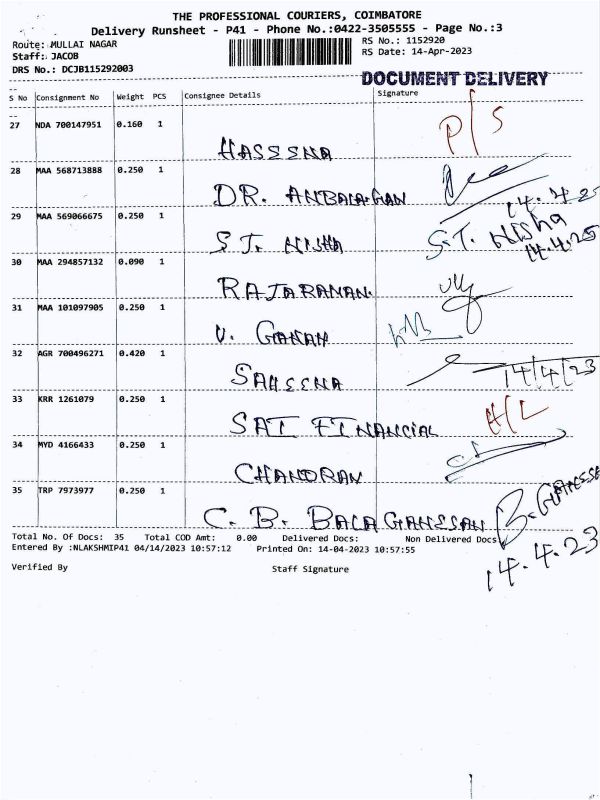 THE PROFESSIONAL COURIERS, COIMBATORE
Delivery Runsheet - P41 - Phone No.:0422-3505555 - Page No.:3
Route: MULLAI NAGAR RS No.: 1152920
Staff: JACOB RS Date: 14-Apr-2023
DRS No.: DCJB115292003
DOCUMENT DELIVERY
S No Consignment No Weight PCS Consignee Details Signature
27 NDA 700147951 0.160 1 P/S
HASEENA
28 MAA 568713888 0.250 1
DR. ANBALAGAN 14.4.25
29 MAA 569066675 0.250 1
S.T. NISHA S.T. NISha
14.4.25
30 MAA 294857132 0.090 1
RAJARAMAN.
31 MAA 101097905 0.250 1
V. GANAN
32 AGR 700496271 0.420 1
SAHEENA 14/4/23
33 KRR 1261079 0.250 1
SAI FINANCIAL
34 MYD 4166433 0.250 1
CHANDRAN
35 TRP 7973977 0.250 1
C. B. BALAGANESSAN
Total No. Of Docs: 35 Total COD Amt: 0.00 Delivered Docs: Non Delivered Docs
Entered By :NLAKSHMIP41 04/14/2023 10:57:12 Printed On: 14-04-2023 10:57:55
14.4.23
Verified By Staff Signature